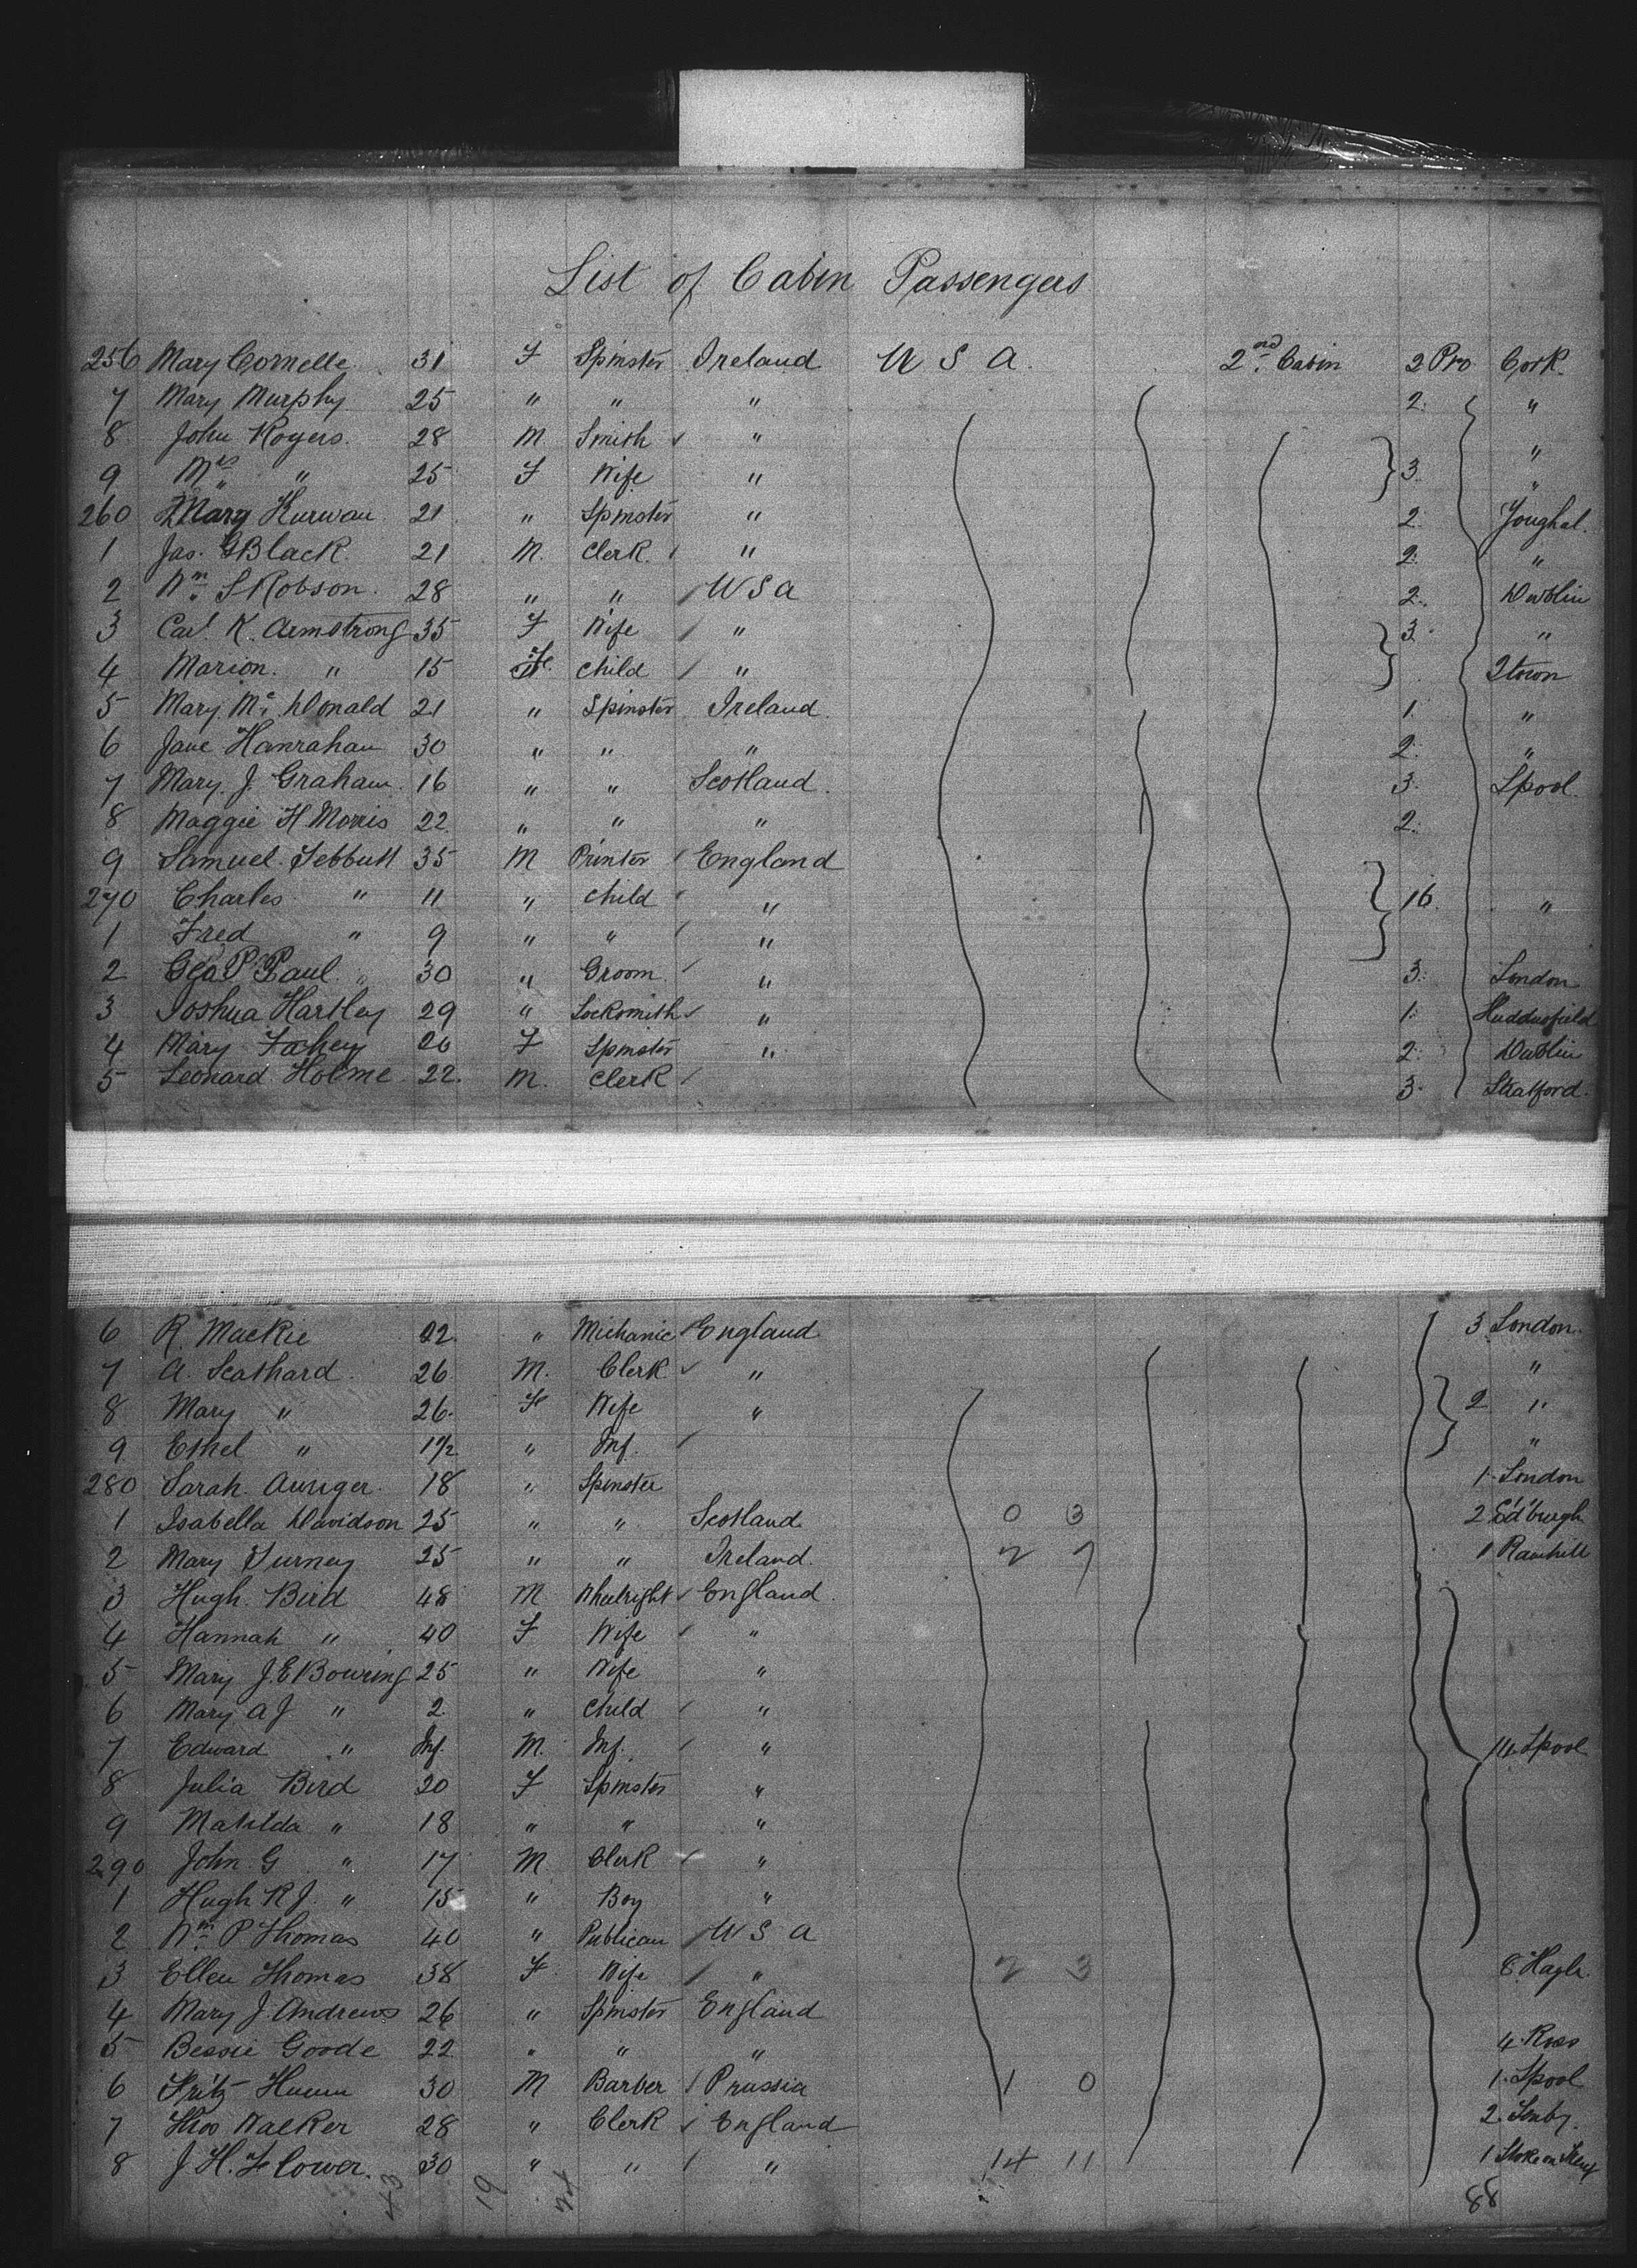 List of Cabin Passengers
256 Mary Cornelle 31 F Spinster Ireland U S A. 2nd Cabin 2 Pro Cork
7 Mary Murphy 25 " " " 2 "
8 John Rogers. 28 M Smith " "
9 Mrs " 25 F Wife " 3 "
260 Mary Kurwan 21 " Spinster " 2 Youghal.
1 Jas. G Black 21 M. Clerk " 2 "
2 Wm. S Robson. 28 " " U S A 2 Dublin
3 K. Armstrong 35 F Wife " 3 "
4 Marion. " 15 F. Child " Qtown
5 Mary Mc Donald 21 " Spinster Ireland 1 "
6 Jane Hanrahan 30 " " " 2 "
7 Mary. J. Graham. 16 " " Scotland. 3. Lpool.
8 Maggie H Morris 22 " " " 2.
9 Samuel Tebbutt 35 M Printer England
270 Charles " 11 " Child " 16. "
1 Fred " 9 " " "
2 Geo P Paul 30 " Groom " 3. London
3 Joshua Hartley 29 " Locksmith " 1. Huddersfield
4 Mary Fahey 26 F Spinster " 2. Dublin
5 Leonard Holme 22. M. Clerk 3. Stratford.
6 R. Mackie 22. " Michanic England 3 London.
7 A. Seathard. 26. M. Clerk " "
8 Mary " 26. F Wife " 2 "
9 Ethel " 1½ " Inf. "
280 Sarah. 18 " Spinster 1. London
1 Isabella Davidson 25 " " Scotland 0 3 2 Ed'burgh
2 Mary 25 " " Ireland. 2 7 1 Rainhill
3 Hugh. Bird 48 M. Wheelright England.
4 Hannah " 40 F Wife "
5 Mary J. E Bowring 25 " Wife "
6 Mary A J. " 2 " Child "
7 Edward " Inf. M. Inf. " Lpool
8 Julia Bird 20 F Spinster "
9 Matilda " 18 " " "
290 John. G " 17 M. Clerk "
1 Hugh R J. " 15 " Boy "
2 Wm. P Thomas 40 " Publican U S A
3 Ellen Thomas 38 F. Wife " 2 3 8 Hayle.
4 Mary J. Andrews 26 " Spinster England
5 Bessie Goode 22 " " " 4. Ross
6 Fritz 30 M Barber Prussia 1 0 1. Lpool
7 Thos Walker 28 " Clerk England 2.
8 J. H. Flower. 30 " " " 14 11 1 Stoke on Trent
43 19 24 88